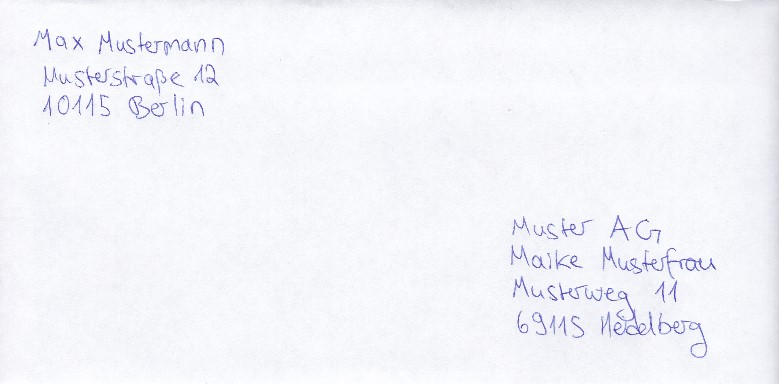 Max Mustermann
Musterstraße 12
10115 Berlin
Muster AG
Maike Musterfrau
Musterweg 11
69115 Heidelberg